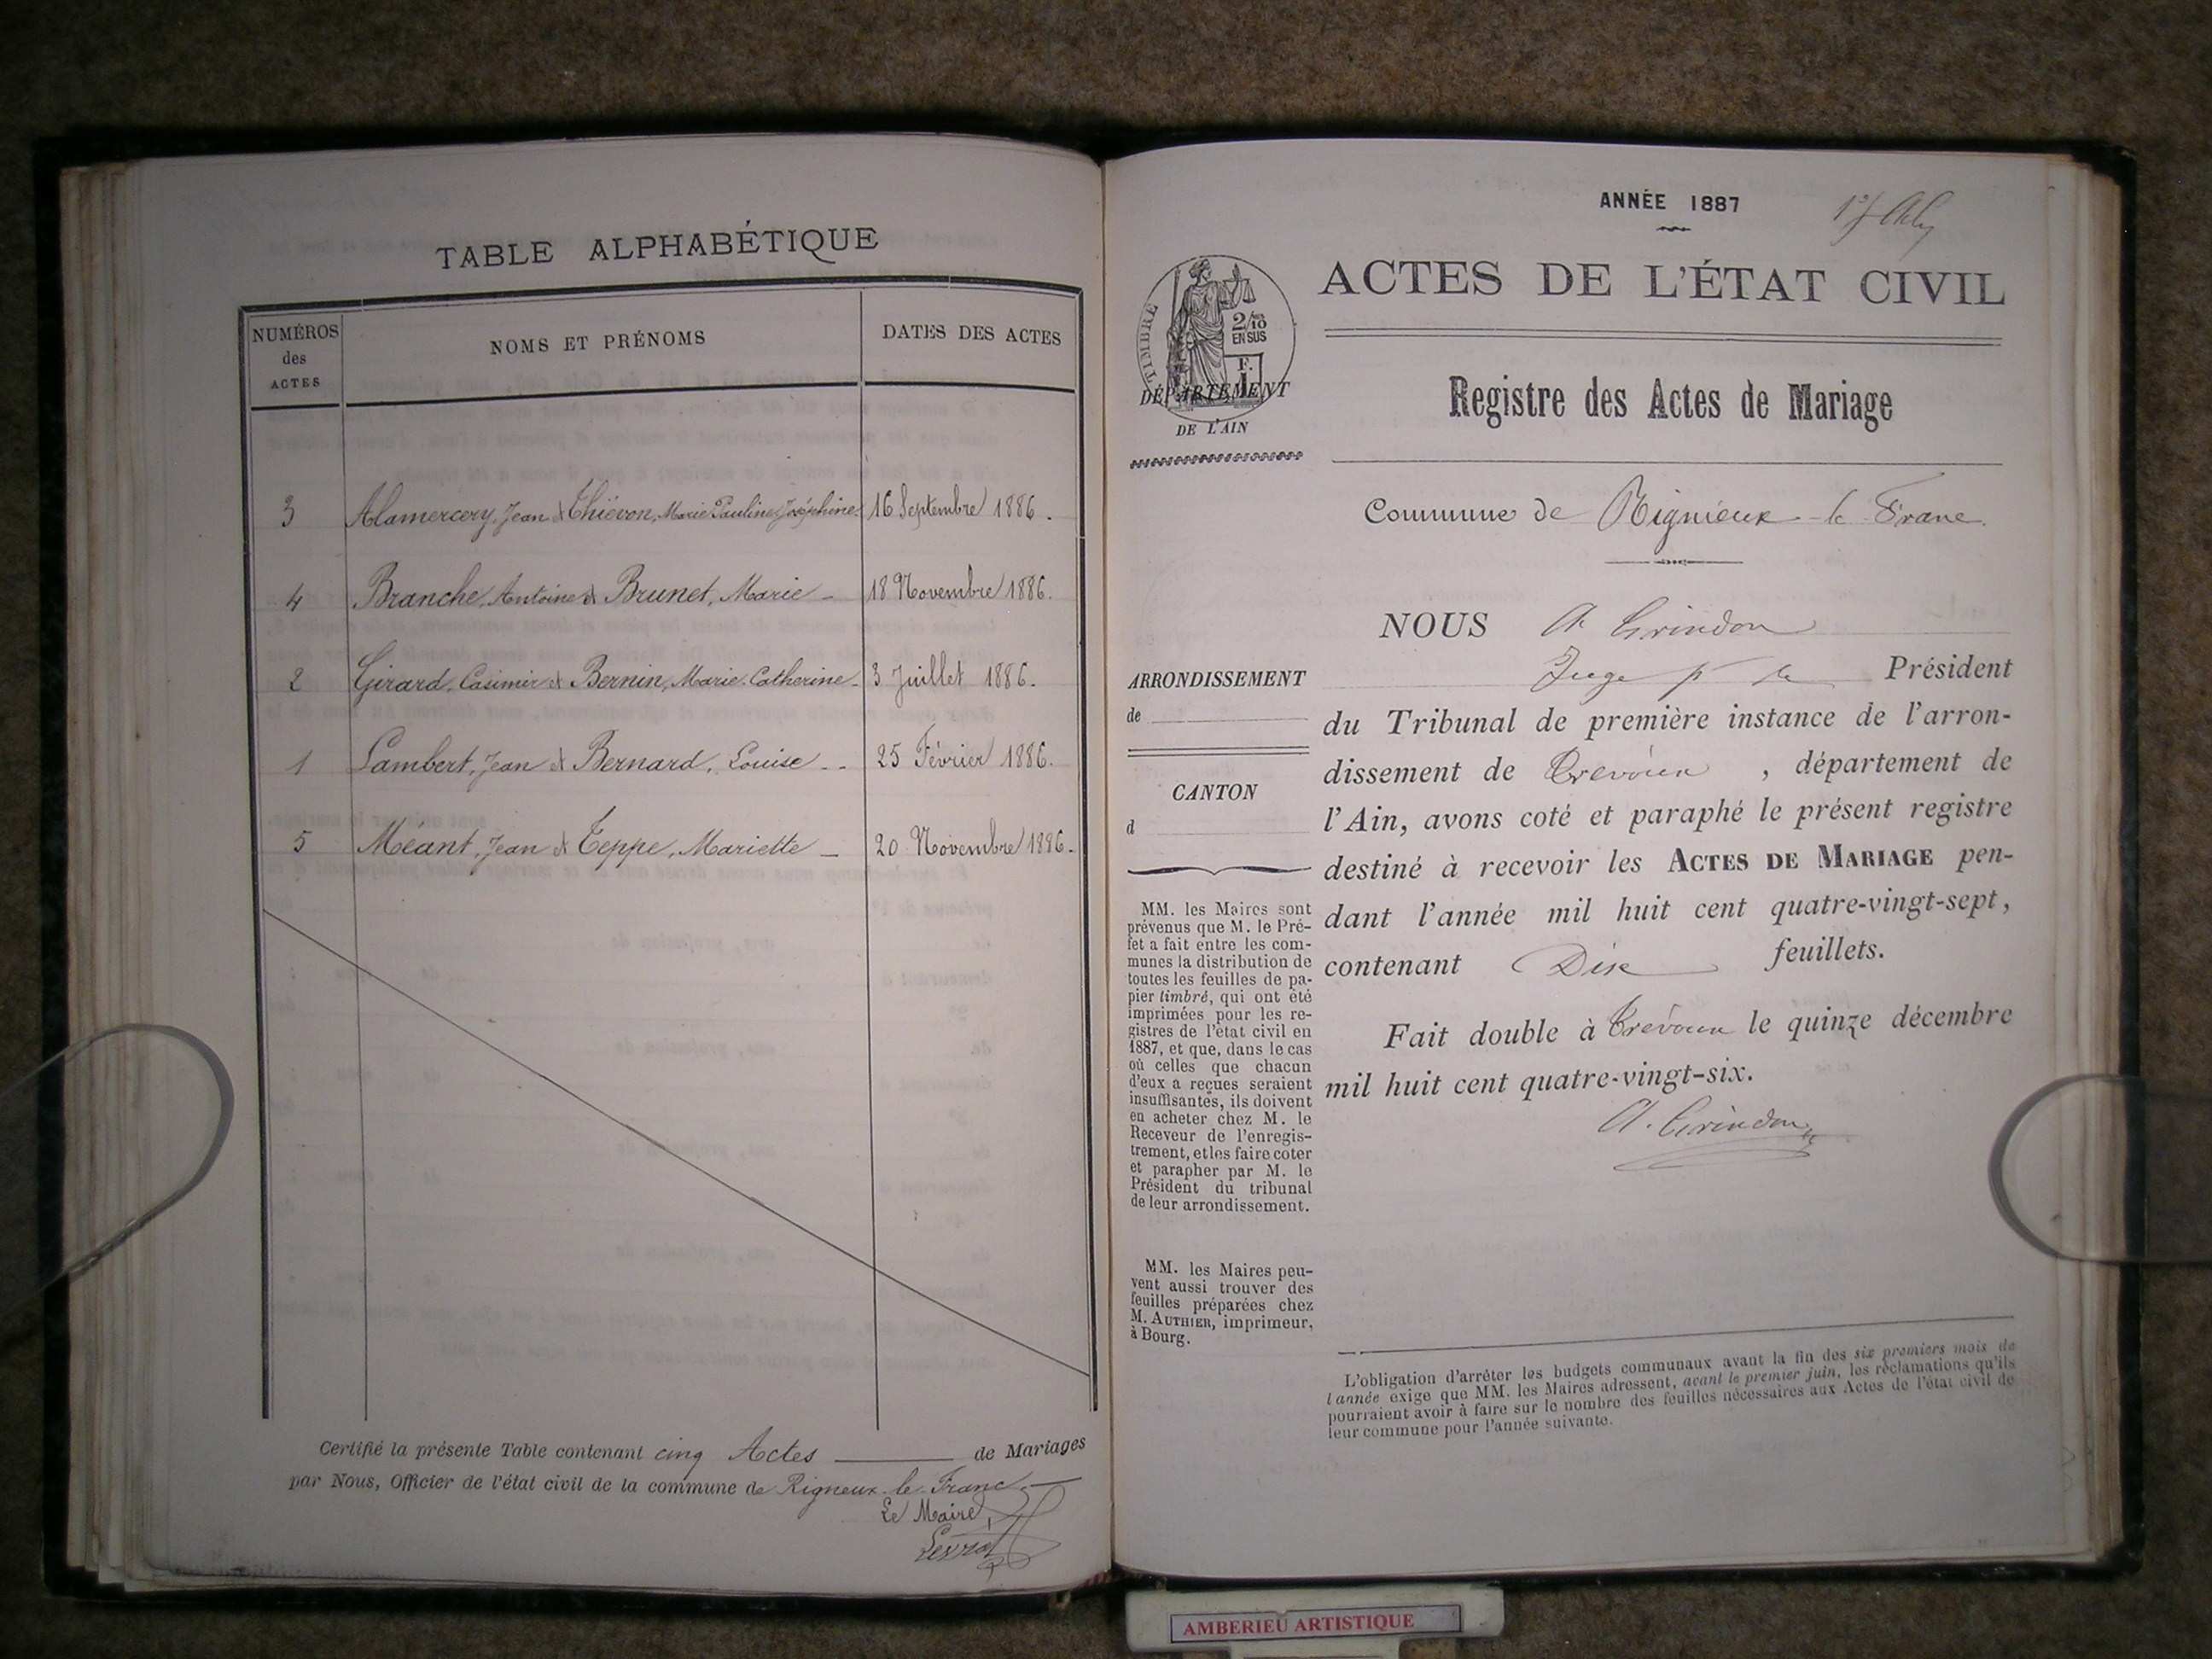 TABLE ALPHABÉTIQUE
NUMÉROS
des
ACTES
NOMS ET PRÉNOMS
DATES DES ACTES
3 Alamercery, Jean & Thiévon, Marie Pauline Joséphine 16 Septembre 1886.
4 Branche, Antoine & Brunet, Marie – 18 Novembre 1886.
2 Girard, Casimir & Bernin, Marie Catherine – 3 Juillet 1886.
1 Lambert, Jean & Bernard, Louise - - 25 Février 1886.
5 Méant, Jean & Teppe, Mariette – 20 Novembre 1886.
Certifié la présente Table contenant cinq Actes de Mariages
par Nous, Officier de l'état civil de la commune de Rigneux-le-Franc
Le Maire,
ANNÉE 1887
ACTES DE L'ÉTAT CIVIL
TIMBRE
2/10
EN SUS
F.
1
DÉPARTEMENT
DE L'AIN
Registre des Actes de Mariage
Commune de Rignieux-le-Franc
NOUS A Grindon
Juge p le Président
du Tribunal de première instance de l'arron-
dissement de Trévoux, département de
l'Ain, avons coté et paraphé le présent registre
destiné à recevoir les ACTES DE MARIAGE pen-
dant l'année mil huit cent quatre-vingt-sept,
contenant Dix feuillets.
Fait double à Trévoux le quinze décembre
mil huit cent quatre-vingt-six.
A. Grindon
ARRONDISSEMENT
de
CANTON
d
MM. les Maires sont
prévenus que M. le Pré-
fet a fait entre les com-
munes la distribution de
toutes les feuilles de pa-
pier timbré, qui ont été
imprimées pour les re-
gistres de l'état civil en
1887, et que, dans le cas
où celles que chacun
d'eux a reçues seraient
insuffisantes, ils doivent
en acheter chez M. le
Receveur de l'enregis-
trement, et les faire coter
et parapher par M. le
Président du tribunal
de leur arrondissement.
MM. les Maires peu-
vent aussi trouver des
feuilles préparées chez
M. AUTHIER, imprimeur,
à Bourg.
L'obligation d'arrêter les budgets communaux avant la fin des six premiers mois de
l'année exige que MM. les Maires adressent, avant le premier juin, les réclamations qu'ils
pourraient avoir à faire sur le nombre des feuilles nécessaires aux Actes de l'état civil de
leur commune pour l'année suivante.
AMBERIEU ARTISTIQUE